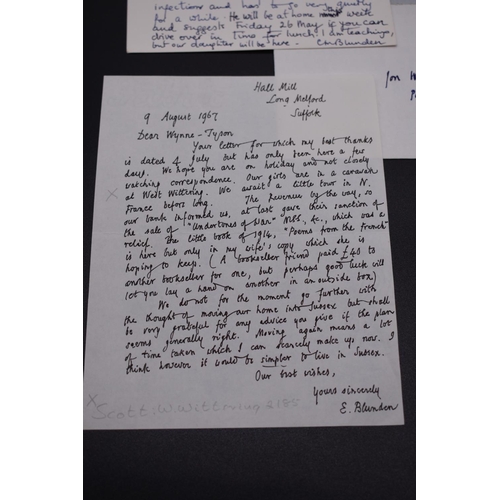 infections and has to go very quietly
for a while. He will be at home next week
and suggests Friday 26 May if you can
drive over in time for lunch. I am teaching,
but our daughter will be here. C. M. Blunden
Hall Mill
Long Melford
Suffolk
9 August 1967
Dear Wynne-Tyson
Your letter for which my best thanks
is dated 4 July but has only been here a few
days. We hope you are on holiday and not closely
watching correspondence. Our girls are in a caravan
at West Wittering. We await a little tour in N.
France before long. The Revenue by the way, so
our bank informed us, at last gave their sanction of
the sale of "Undertones of War" MSS., &c., which was a
relief. The little book of 1914, "Poems from the French"
is here but only in my wife's copy which she is
hoping to keep. (A bookseller friend paid £40 to
another bookseller for one, but perhaps good luck will
let you lay a hand on another in an outside box)
We do not for the moment go further with
the thought of moving our home into Sussex but shall
be very grateful for any advice you give if the plan
seems generally right. Moving again means a lot
of time taken which I can scarcely make up now. I
think however it would be simpler to live in Sussex.
Our best wishes,
Yours sincerely
E. Blunden
x
x
Scott: W. Wittering 2185